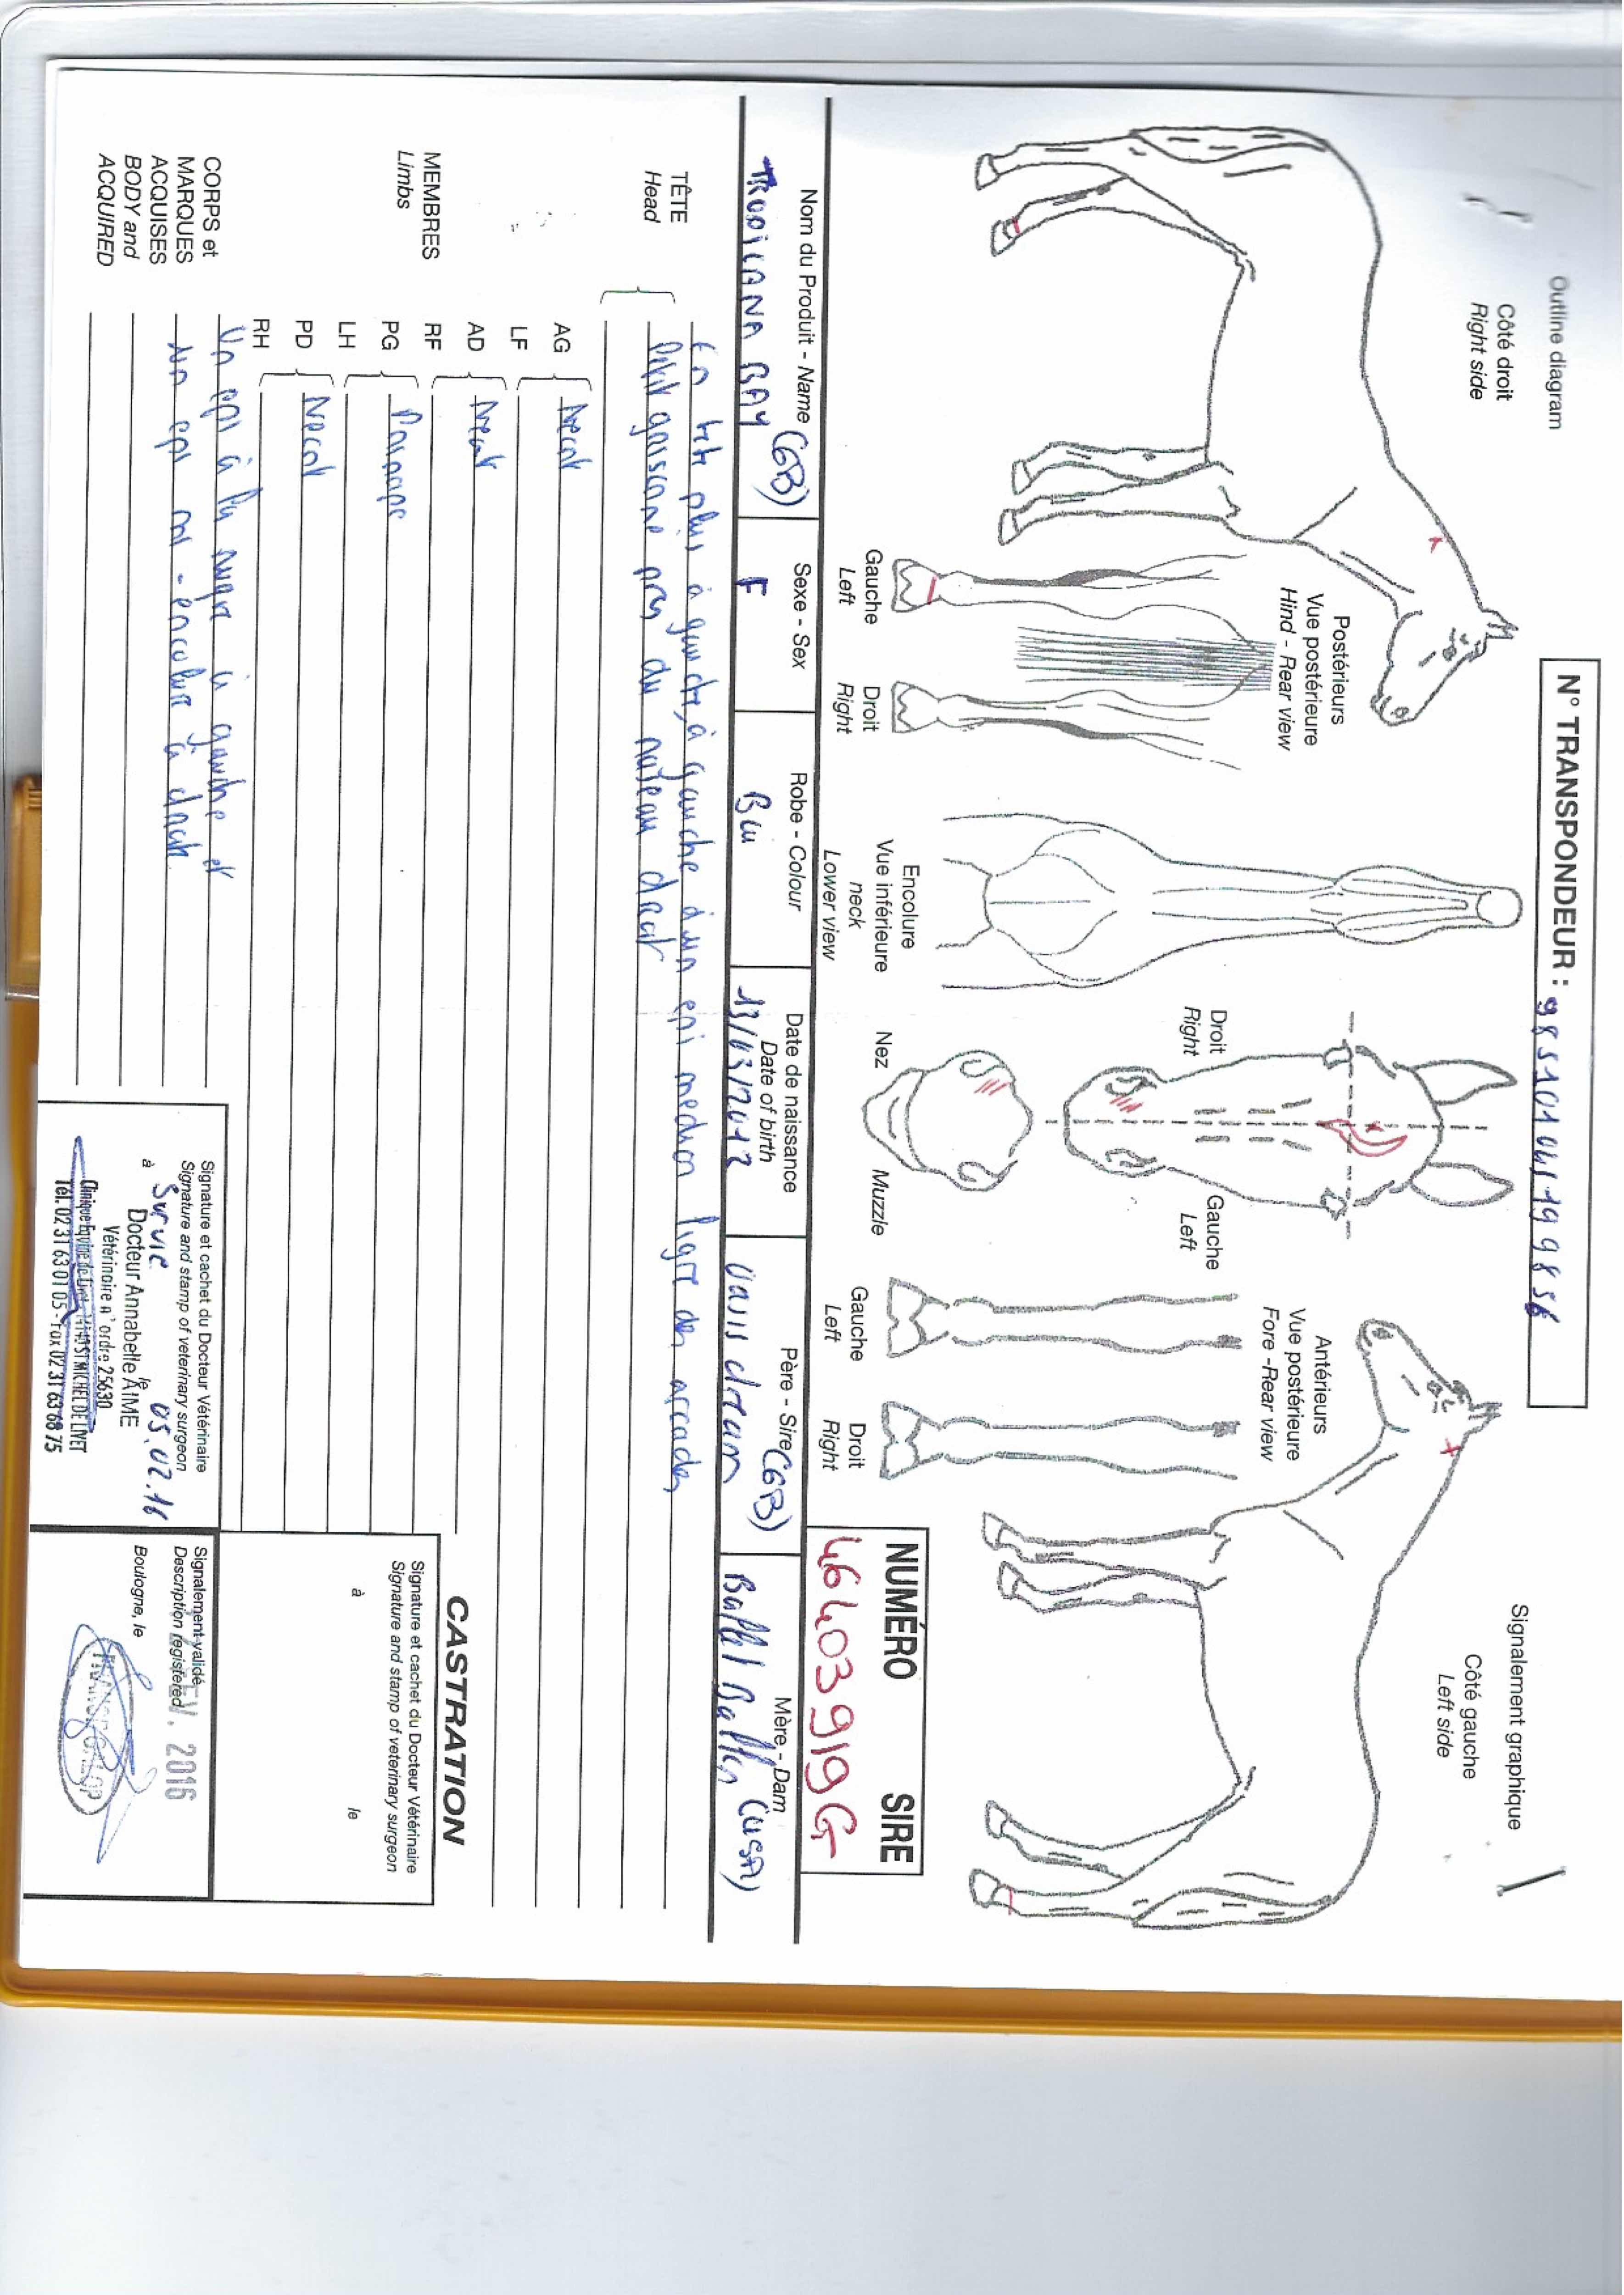 Outline diagram
N° TRANSPONDEUR : 985101041199856
Signalement graphique
Côté droit
Right side
Côté gauche
Left side
Postérieurs
Vue postérieure
Hind - Rear view
Gauche
Left
Droit
Right
Encolure
Vue inférieure
neck
Lower view
Droit
Right
Gauche
Left
Nez
Muzzle
Antérieurs
Vue postérieure
Fore -Rear view
Gauche
Left
Droit
Right
NUMÉRO SIRE
46403919G
Nom du Produit - Name
TROPICANA BAY (GB)
Sexe - Sex
F
Robe - Colour
Bai
Date de naissance
Date of birth
13/03/2012
Père - Sire
Oasis dream (GB)
Mère - Dam
Ballet Ballon (USA)
TÊTE
Head
En tete plus à gauche, à gauche d'un epi median ligne des arcades
petit grisonné près du naseau droit
MEMBRES
Limbs
AG
LF
Neant
AD
RF
Neant
PG
LH
PD
RH
Neant
CORPS et
MARQUES
ACQUISES
BODY and
ACQUIRED
Un epi à la nuque à gauche et
un epi mi-encolure à droite
CASTRATION
Signature et cachet du Docteur Vétérinaire
Signature and stamp of veterinary surgeon
à le
Signature et cachet du Docteur Vétérinaire
Signature and stamp of veterinary surgeon
à Survie le 05.02.16
Docteur Annabelle AIME
Vétérinaire n° ordre 25630
Clinique Equine de Livet - 14140 ST MICHEL DE LIVET
Tél. 02 31 63 01 05 - Fax 02 31 63 68 75
Signalement validé
Description registered
2016
Boulogne, le